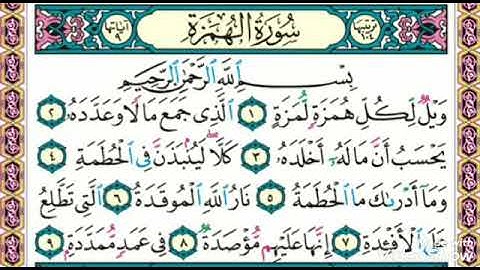 ترتيبها ١٠٤ سُورَةُ الْهُمَزَةِ آياتها ٩
بِسْمِ اللَّهِ الرَّحْمَٰنِ الرَّحِيمِ
وَيْلٌ لِّكُلِّ هُمَزَةٍ لُّمَزَةٍ ١ الَّذِي جَمَعَ مَالًا وَعَدَّدَهُ ٢
يَحْسَبُ أَنَّ مَالَهُ أَخْلَدَهُ ٣ كَلَّا لَيُنبَذَنَّ فِي الْحُطَمَةِ ٤
وَمَا أَدْرَىٰكَ مَا الْحُطَمَةُ ٥ نَارُ اللَّهِ الْمُوقَدَةُ ٦ الَّتِي تَطَّلِعُ
عَلَى الْأَفْئِدَةِ ٧ إِنَّهَا عَلَيْهِم مُّؤْصَدَةٌ ٨ فِي عَمَدٍ مُّمَدَّدَةٍ ٩